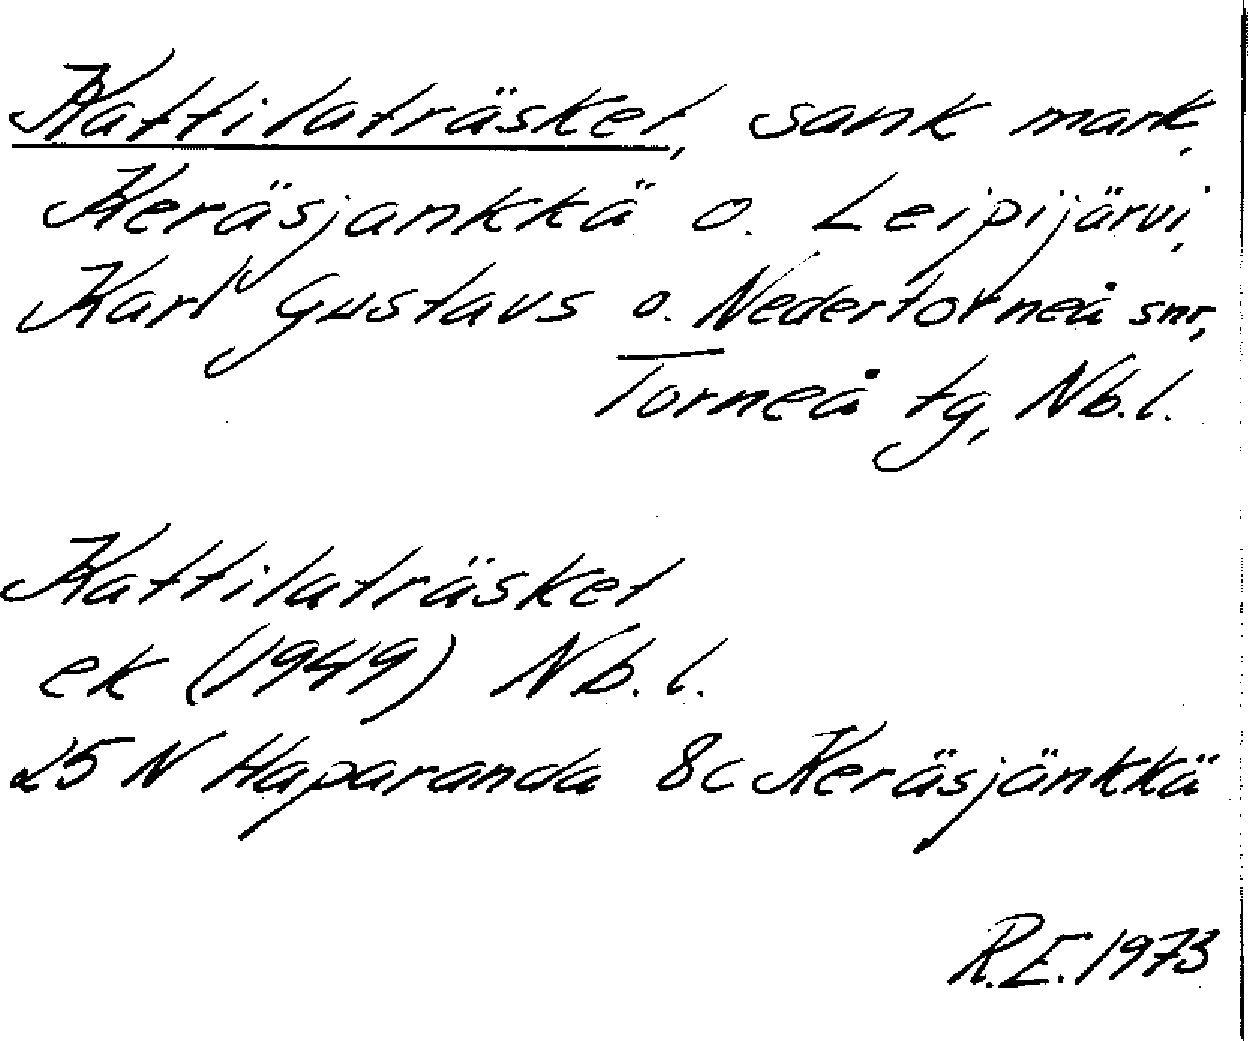 Kattilaträsket, sank mark,
Keräsjankkä o. Leipijärvi,
Karl Gustavs o. Nedertorneå snr,
Torneå tg, Nb.l.
Kattilaträsket
ek (1949) Nb.l.
25 N Haparanda 8c Keräsjänkkä
R.E. 1973